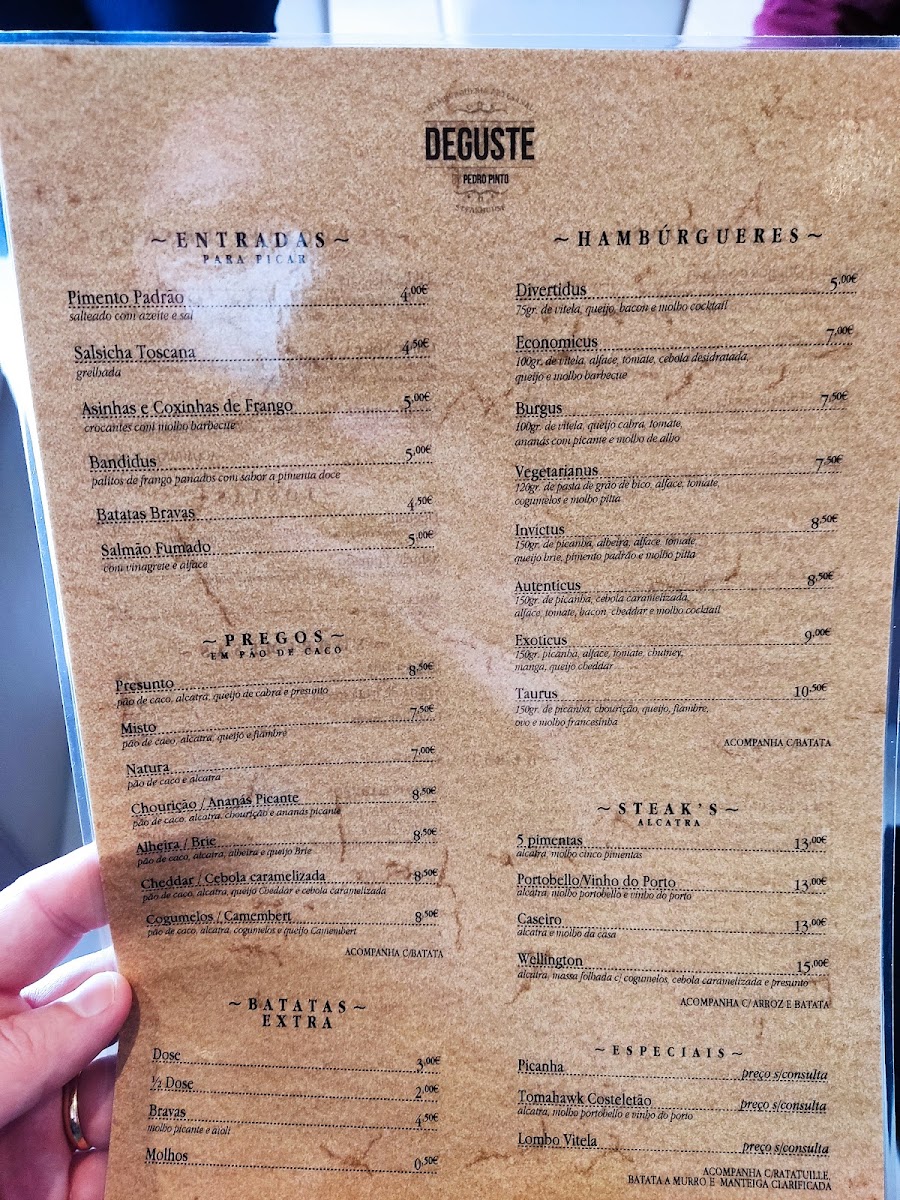 DEGUSTE
BY PEDRO PINTO
STEAKHOUSE
~ENTRADAS~
PARA PICAR
Pimento Padrão 4,00€
salteado com azeite e sal
Salsicha Toscana 4,50€
grelhada
Asinhas e Coxinhas de Frango 5,00€
crocantes com molho barbecue
Bandidus 5,00€
palitos de frango panados com sabor a pimenta doce
Batatas Bravas 4,50€
Salmão Fumado 5,00€
com vinagrete e alface
~PREGOS~
EM PÃO DE CACO
Presunto 8,50€
pão de caco, alcatra, queijo de cabra e presunto
Misto 7,50€
pão de caco, alcatra, queijo e fiambre
Natura 7,00€
pão de caco e alcatra
Chourição / Ananás Picante 8,50€
pão de caco, alcatra, chourição e ananás picante
Alheira / Brie 8,50€
pão de caco, alcatra, alheira e queijo Brie
Cheddar / Cebola caramelizada 8,50€
pão de caco, alcatra, queijo Cheddar e cebola caramelizada
Cogumelos / Camembert 8,50€
pão de caco, alcatra, cogumelos e queijo Camembert
ACOMPANHA C/BATATA
~BATATAS~
EXTRA
Dose 3,00€
½ Dose 2,00€
Bravas 4,50€
molho picante e aioli
Molhos 0,50€
~HAMBÚRGUERES~
Divertidus 5,00€
75gr. de vitela, queijo, bacon e molho cocktail
Economicus 7,00€
100gr. de vitela, alface, tomate, cebola desidratada,
queijo e molho barbecue
Burgus 7,50€
100gr. de vitela, queijo cabra, tomate,
ananás com picante e molho de alho
Vegetarianus 7,50€
120gr. de pasta de grão de bico, alface, tomate,
cogumelos e molho pitta
Invictus 8,50€
150gr. de picanha, alheira, alface, tomate,
queijo brie, pimento padrão e molho pitta
Autenticus 8,50€
150gr. de picanha, cebola caramelizada,
alface, tomate, bacon, cheddar e molho cocktail
Exoticus 9,00€
150gr. picanha, alface, tomate, chutney,
manga, queijo cheddar
Taurus 10,50€
150gr. de picanha, chourição, queijo, fiambre,
ovo e molho francesinha
ACOMPANHA C/BATATA
~STEAK'S~
ALCATRA
5 pimentas 13,00€
alcatra, molho cinco pimentas
Portobello/Vinho do Porto 13,00€
alcatra, molho portobello e vinho do porto
Caseiro 13,00€
alcatra e molho da casa
Wellington 15,00€
alcatra, massa folhada c/ cogumelos, cebola caramelizada e presunto
ACOMPANHA C/ARROZ E BATATA
~ESPECIAIS~
Picanha preço s/consulta
Tomahawk Costeletão preço s/consulta
alcatra, molho portobello e vinho do porto
Lombo Vitela preço s/consulta
ACOMPANHA C/RATATUILLE,
BATATA A MURRO E MANTEIGA CLARIFICADA